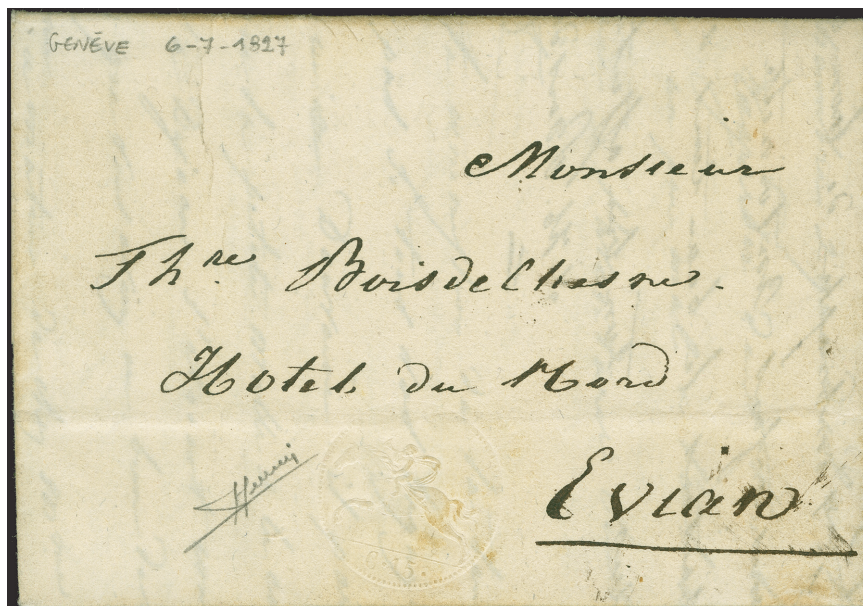 GENÈVE 6-7-1827
Monsieur
Th.re Bois de Chesne.
Hotel du Nord
Evian
C. 15.